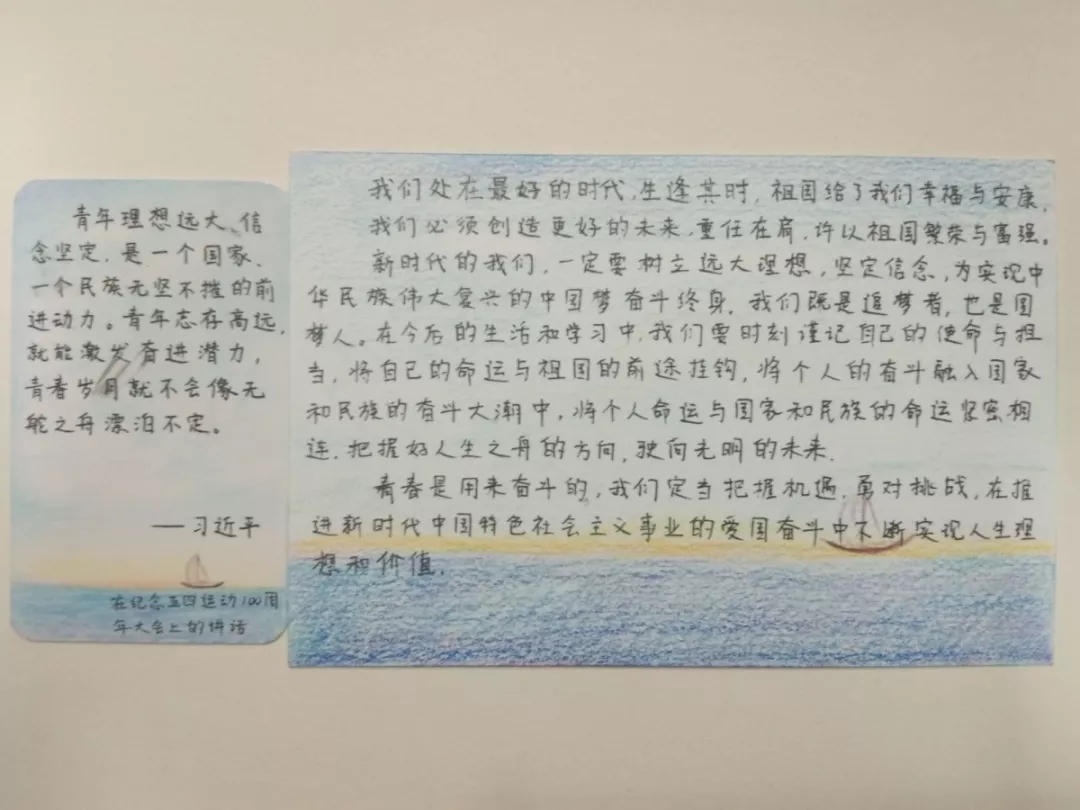 青年理想远大、信
念坚定，是一个国家、
一个民族无坚不摧的前
进动力。青年志存高远，
就能激发奋进潜力，
青春岁月就不会像无
舵之舟漂泊不定。
——习近平
在纪念五四运动100周
年大会上的讲话
我们处在最好的时代，生逢其时，祖国给了我们幸福与安康，
我们必须创造更好的未来，重任在肩，许以祖国繁荣与富强。
新时代的我们，一定要树立远大理想，坚定信念，为实现中
华民族伟大复兴的中国梦奋斗终身。我们既是追梦者，也是圆
梦人。在今后的生活和学习中，我们要时刻谨记自己的使命与担
当，将自己的命运与祖国的前途挂钩，将个人的奋斗融入国家
和民族的奋斗大潮中，将个人命运与国家和民族的命运紧密相
连，把握好人生之舟的方向，驶向光明的未来。
青春是用来奋斗的，我们定当把握机遇，勇对挑战，在推
进新时代中国特色社会主义事业的爱国奋斗中不断实现人生理
想和价值。